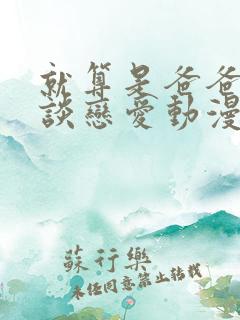 就算是爸爸
談戀愛動漫
蘇行樂
未經同意禁止轉載